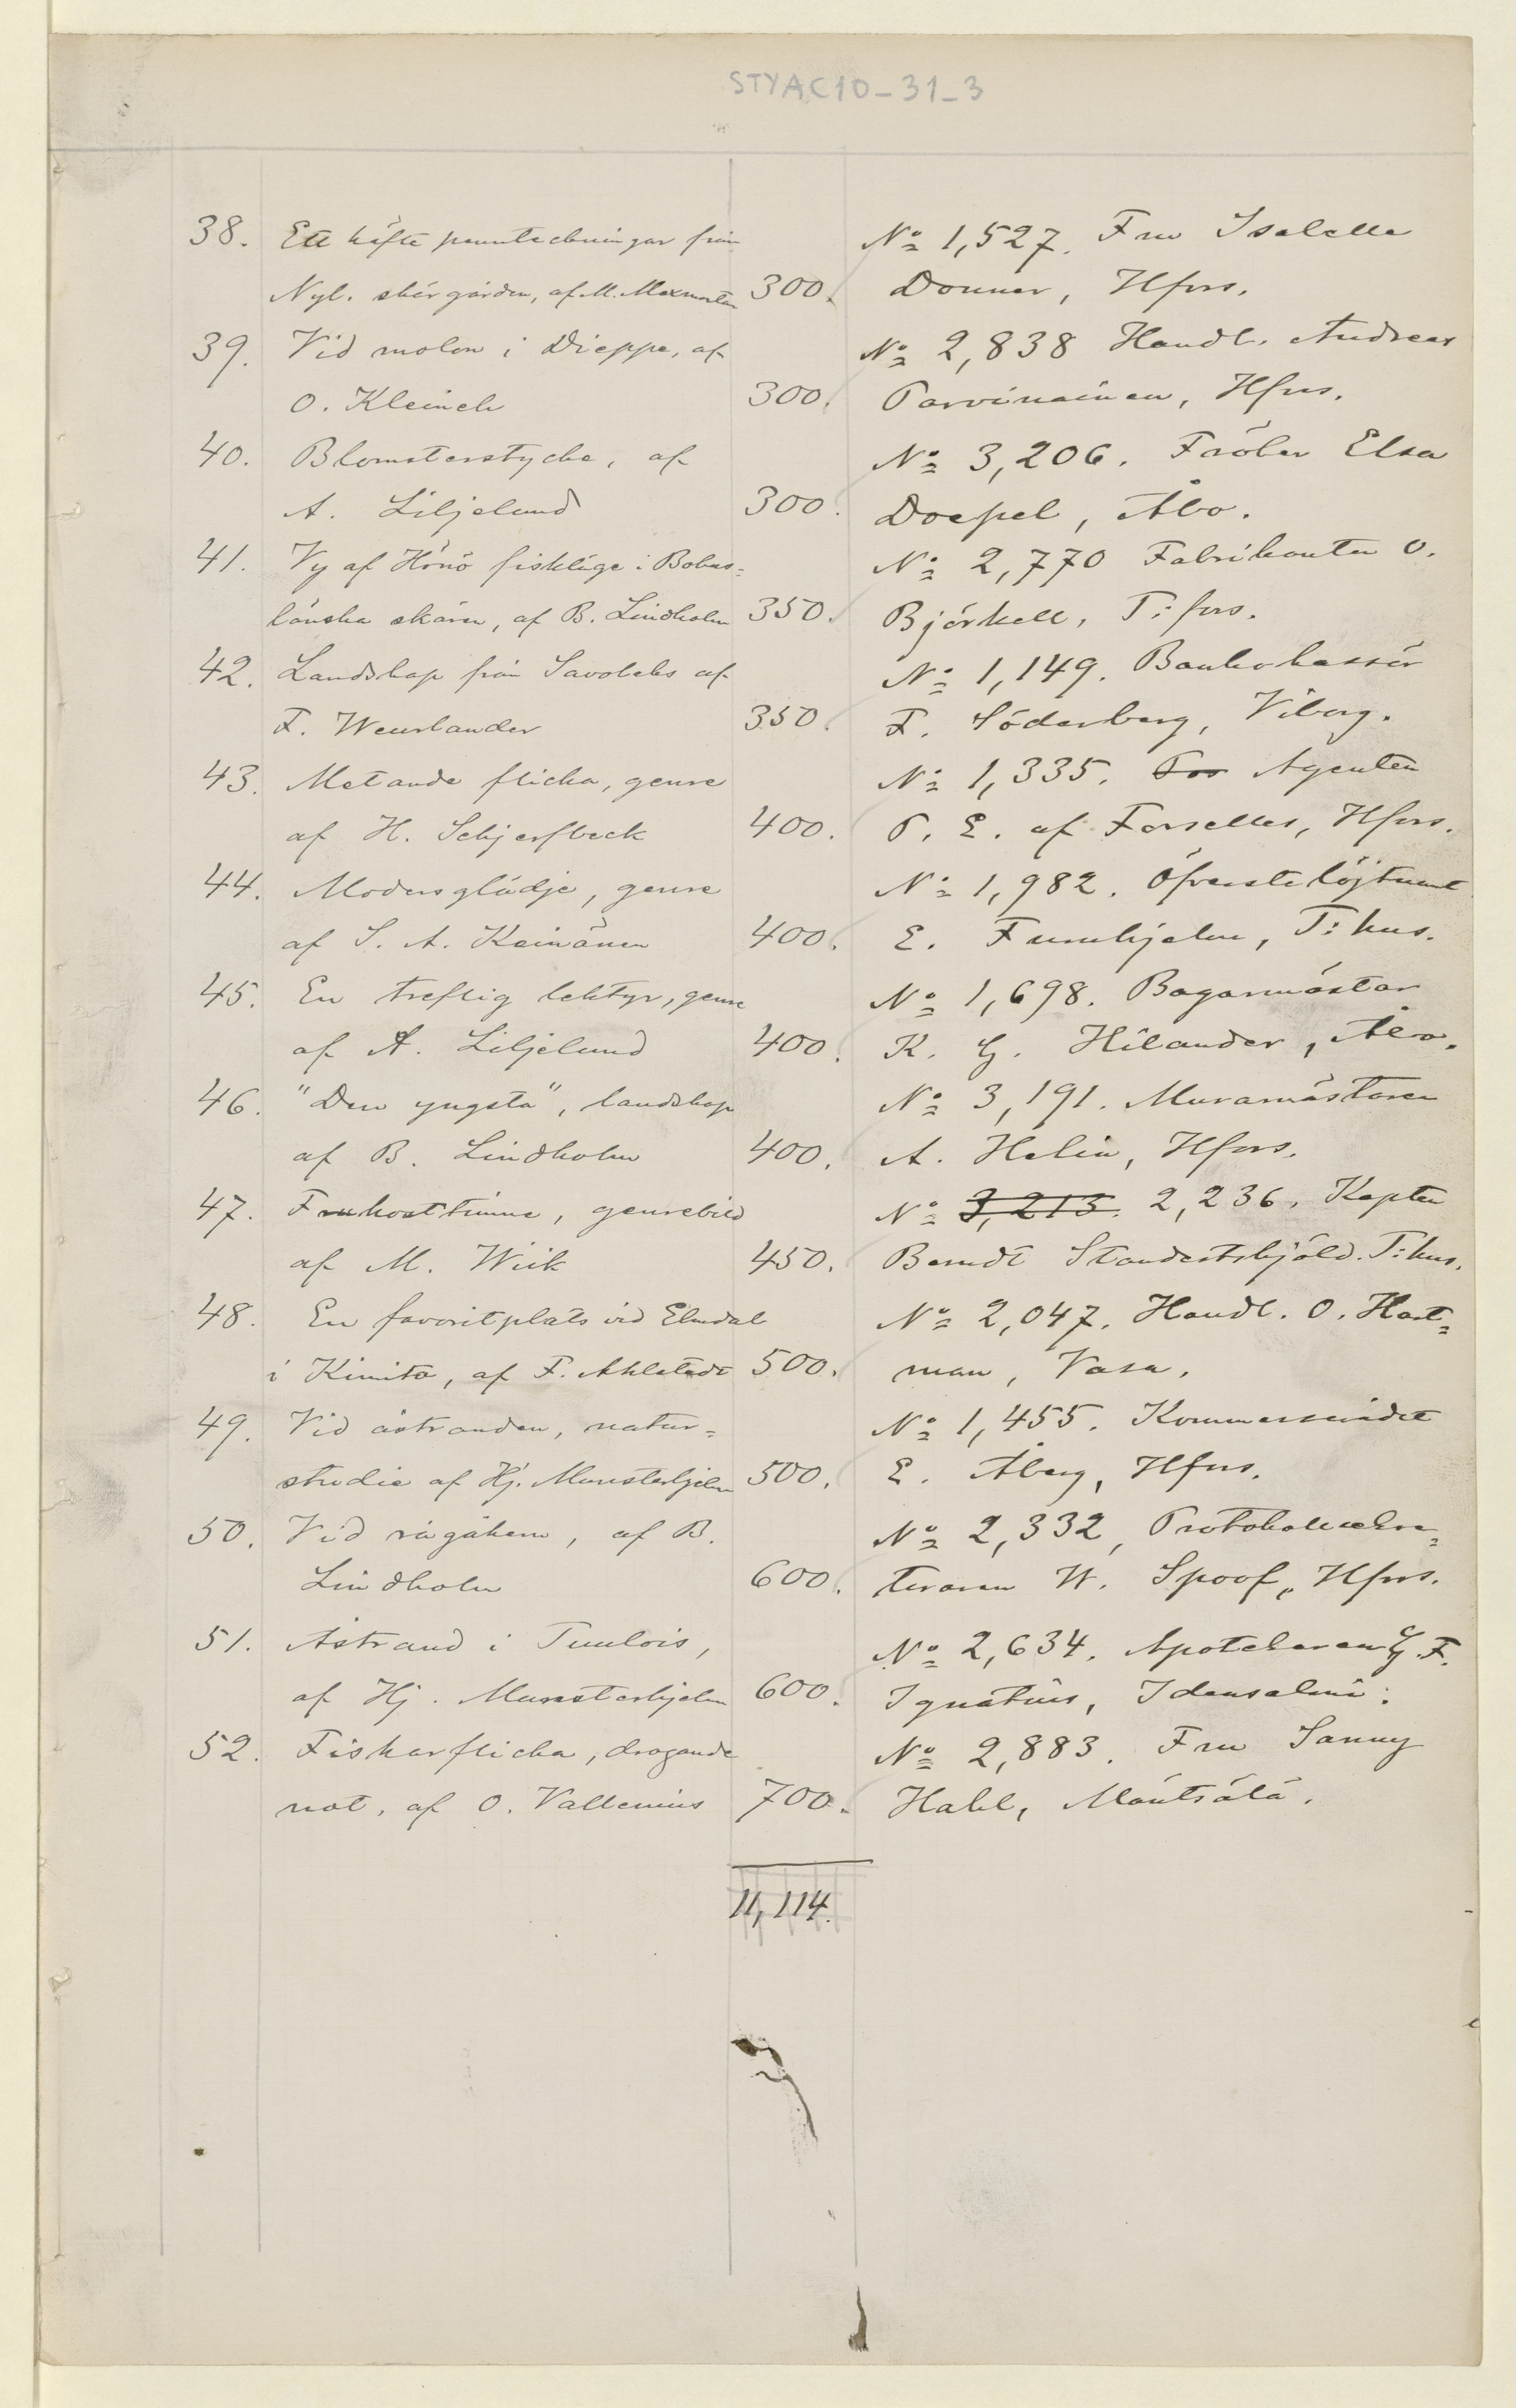 STYAC10-31-3
38. Ett häfte pennteckningar från N:o 1,527. Fru Isabella
Nyl. skärgården, af M. Maxmontan 300. Donner, Hfors.
39. Vid molon i Dieppe, af N:o 2,838 Handl. Andreas
O. Kleineh 300. Parvinainen, Hfors.
40. Blomsterstycke, af N:o 3,206. Fröken Elsa
A. Liljelund 300. Doepel, Åbo.
41. Vy af Hönö fiskläge i Bohus= N:o 2,770 Fabrikanten O.
länska skären, af B. Lindholm 350. Björkell, T:fors.
42. Landskap från Savolaks af N:o 1,149. Bankokassör
T. Weurlander 350. F. Söderberg, Viborg.
43. Metande flicka, genre N:o 1,335. Agenten
af H. Schjerfbeck 400. P. E. af Forselles, Hfors.
44. Modersglädje, genre N:o 1,982. Öfverstelöjtnant
af S. A. Keinänen 400. E. Furuhjelm, T:hus.
45. En treflig lektyr, genre N:o 1,698. Bagarmästar
af A. Liljelund 400. K. G. Hilander, Åbo.
46. "Den yngsta", landskap N:o 3,191. Muramästaren
af B. Lindholm 400. A. Helin, Hfors.
47. Frukosttimme, genrebild N:o 3,213. 2,236. Kapten
af M. Wiik 450. Berndt Standertskjöld. T:hus.
48. En favoritplats vid Elmdal N:o 2,047. Handl. O. Hart=
i Kimito, af F. Ahlstedt 500. man, Vasa.
49. Vid åstranden, natur= N:o 1,455. Kommerserådet
studie af Hj. Munsterhjelm 500. E. Åberg, Hfors.
50. Vid rågåkern, af B. N:o 2,332, Protokollsekre=
Lindholm 600. teraren W. Spoof, Hfors.
51. Åstrand i Tuulois, N:o 2,634. Apotekaren G. F.
af Hj. Munsterhjelm 600. Ignatius, Idensalmi.
52. Fiskarflicka, dragande N:o 2,883. Fru Sanny
not, af O. Vallenius 700. Hahl, Mäntsälä.
11,114.